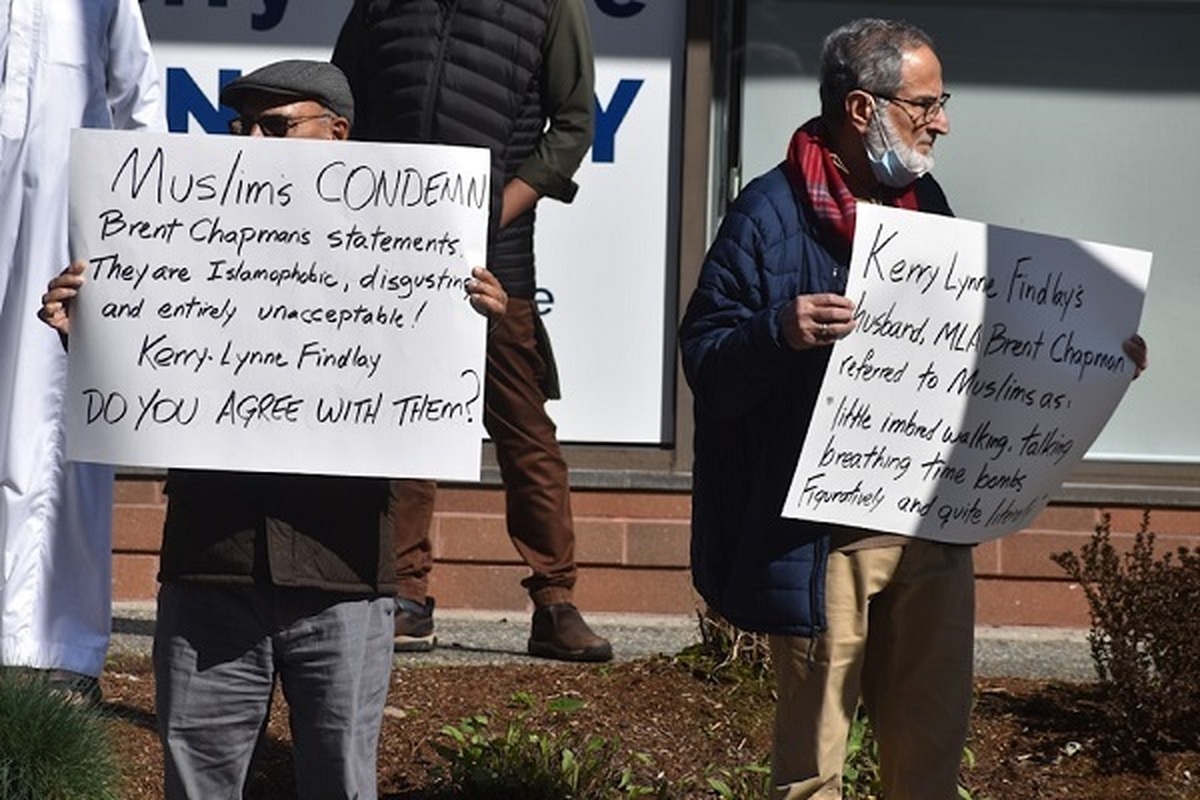 N
Y
e
Muslims CONDEMN
Brent Chapman's statements.
They are Islamophobic, disgusting
and entirely unacceptable!
Kerry-Lynne Findlay
DO YOU AGREE WITH THEm?
Kerry Lynne Findlay's
husband, MLA Brent Chapman
referred to Muslims as:
"little imbred walking, talking
breathing time bombs
Figuratively and quite literally"